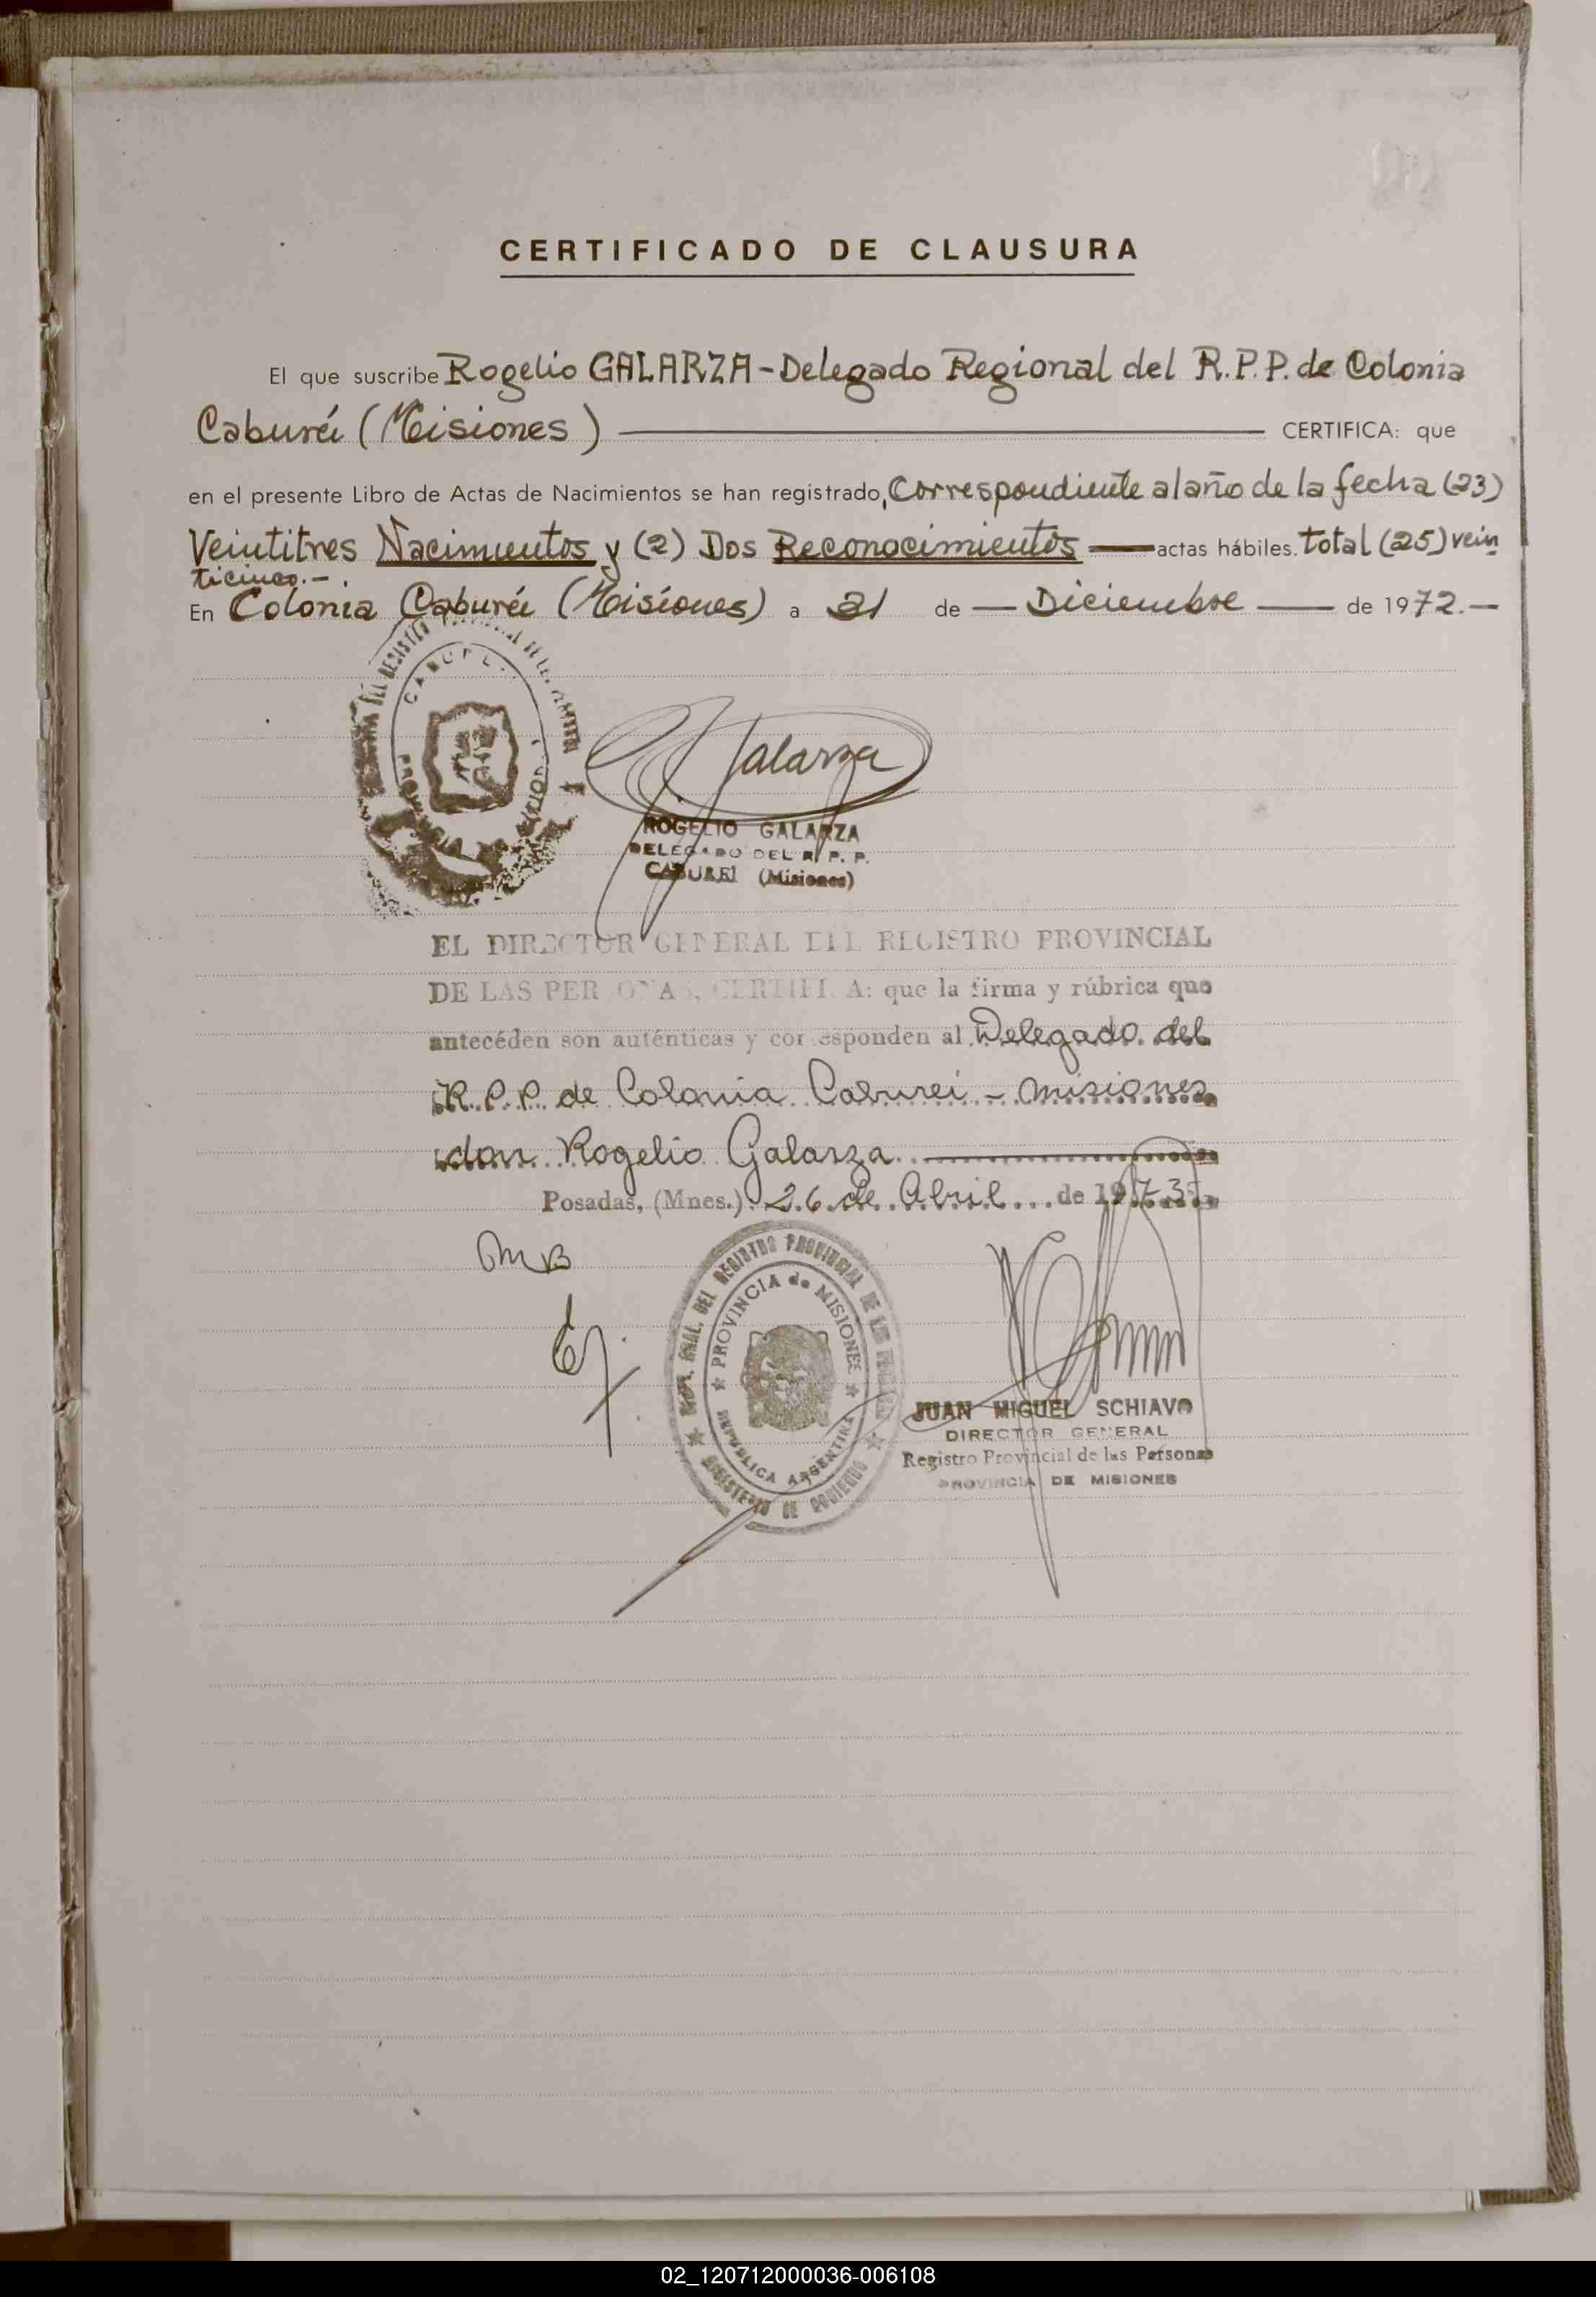 CERTIFICADO DE CLAUSURA
El que suscribe Rogelio GALARZA - Delegado Regional del R.P.P. de Colonia
Caburéi (Misiones) CERTIFICA: que
en el presente Libro de Actas de Nacimientos se han registrado, Correspondiente al año de la fecha (23)
Veintitres Nacimientos y (2) Dos Reconocimientos actas hábiles. total (25) vein
ticinco.-
En Colonia Caburéi (Misiones) a 21 de Diciembre de 1972.-
Galarza
ROGELIO GALARZA
DELEGADO DEL R. P. P.
CABUREI (Misiones)
EL DIRECTOR GENERAL DEL REGISTRO PROVINCIAL
DE LAS PERSONAS, CERTIFICA: que la firma y rúbrica que
antecéden son auténticas y corresponden al Delegado del
R.P.P. de Colonia Caburei - Misiones
don Rogelio Galarza
Posadas, (Mnes.) 26 de Abril de 1973
MB
DEL REGISTRO PROVINCIAL DE LAS
PROVINCIA de MISIONES
REPUBLICA ARGENTINA
MINISTERIO DE GOBIERNO
JUAN MIGUEL SCHIAVO
DIRECTOR GENERAL
Registro Provincial de las Personas
PROVINCIA DE MISIONES
02_120712000036-006108